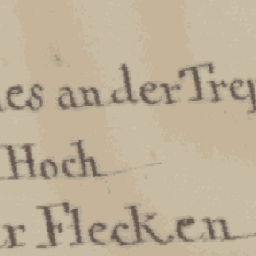 es an der Trep
Hoch
r Flecken